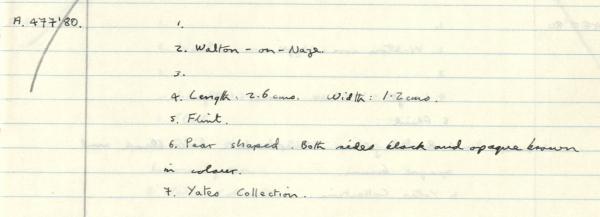 A. 477'80.
1.
2. Walton-on-Naze.
3.
4. Length: 2.6 cms. Width: 1.2 cms.
5. Flint.
6. Pear shaped. Both sides black and opaque brown
in colour.
7. Yates Collection.